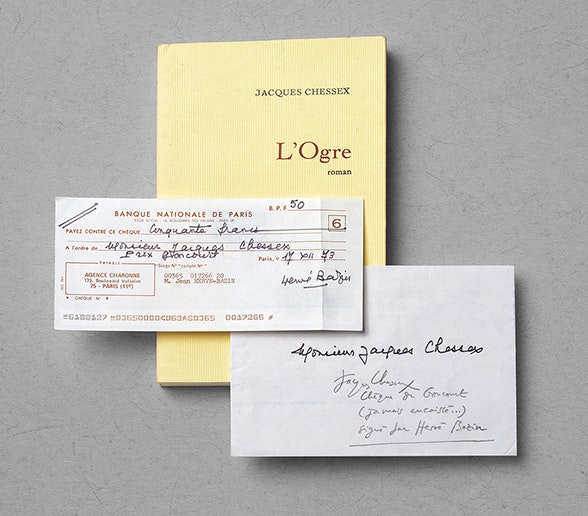 JACQUES CHESSEX
L'Ogre
roman
B.P.F. 50
BANQUE NATIONALE DE PARIS
6
PAYEZ CONTRE CE CHÈQUE Cinquante francs
A l'ordre de Monsieur Jacques Chessex
Prix Goncourt
Paris, le 17 XII 73
PAYABLE
AGENCE CHARONNE
173, Boulevard Voltaire
75 - PARIS (11e)
00365 017266 20
M. Jean HERVE-BAZIN
Hervé Bazin
CHÈQUE N°
0017266
Monsieur Jacques Chessex
Jacques Chessex
Chèque du Goncourt
(jamais encaissé...)
signé par Hervé Bazin